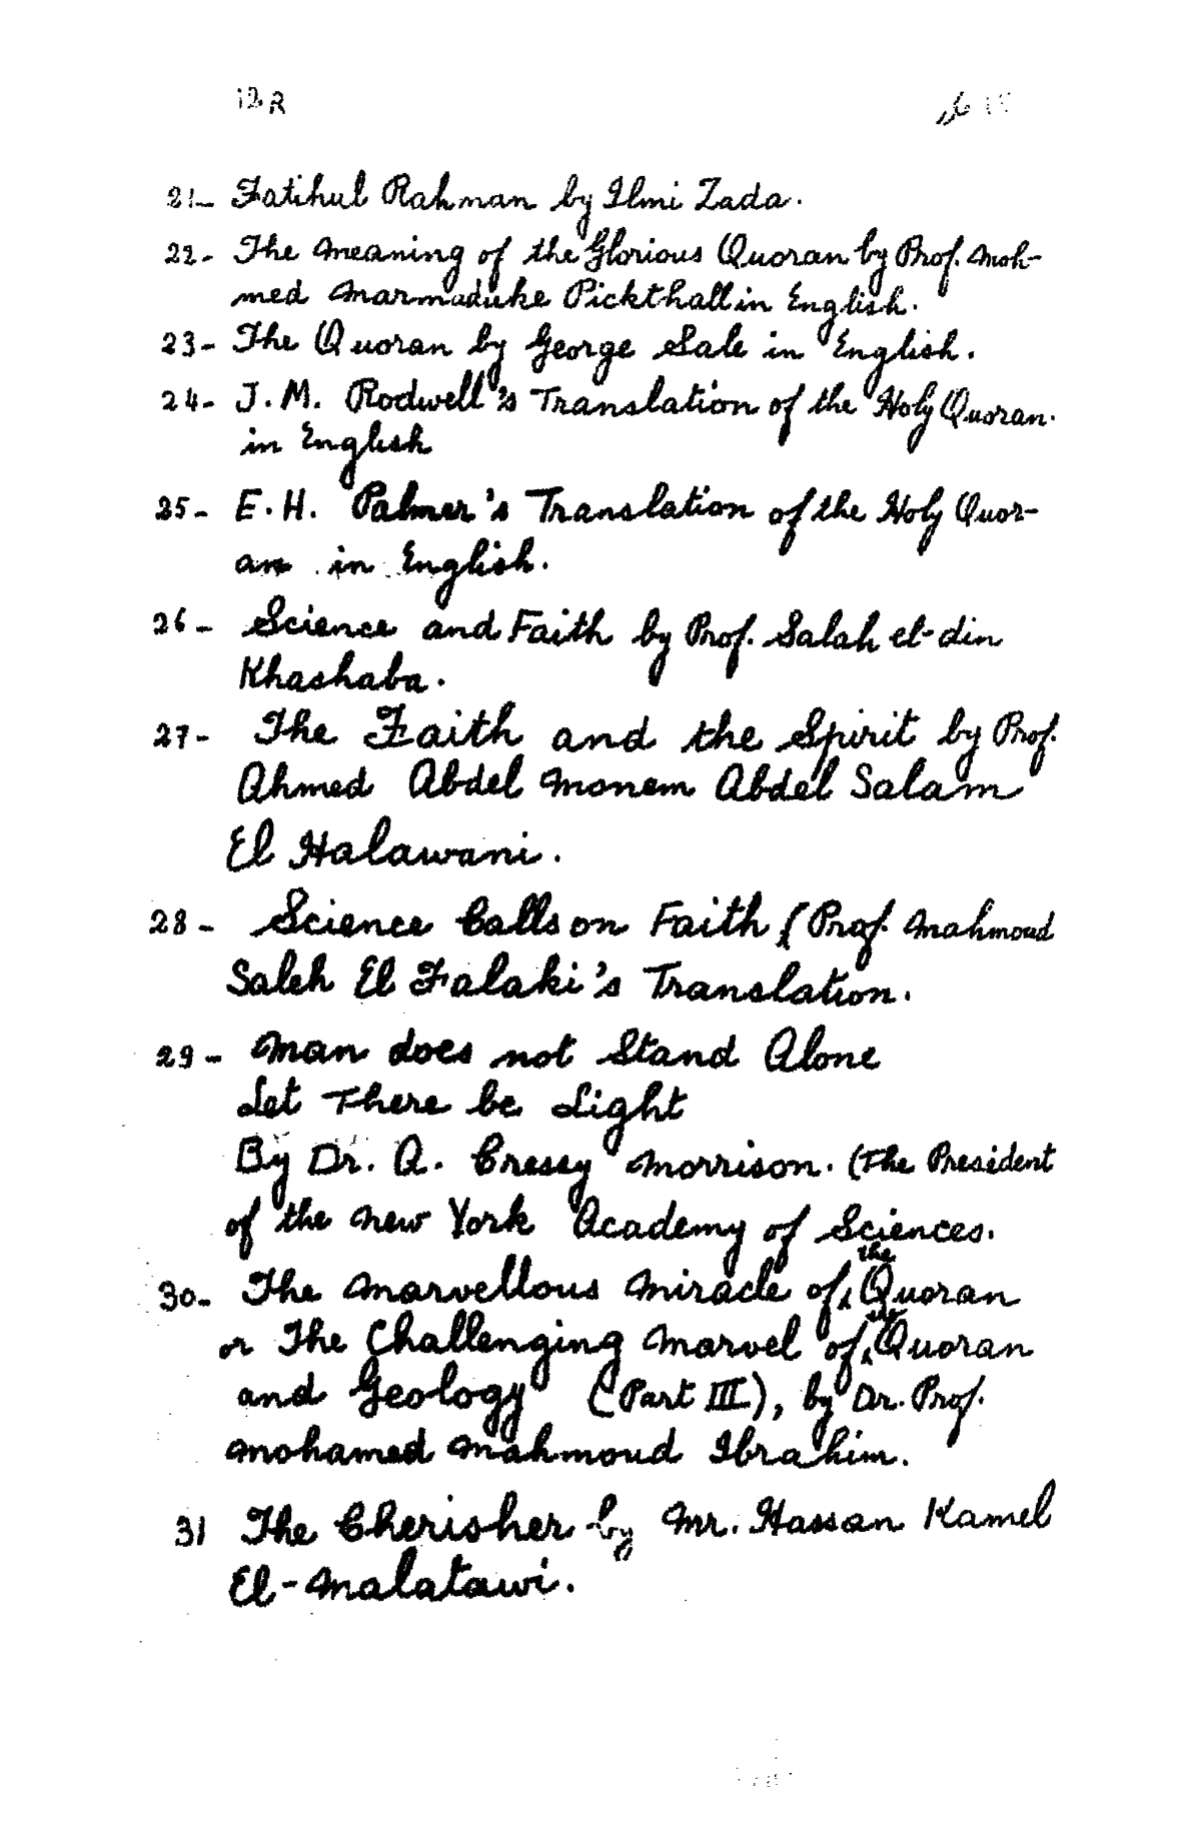 12R
21- Fatihul Rahman by Ilmi Zada.
22- The Meaning of the Glorious Quoran by Prof. Moh-
med Marmaduke Pickthall in English.
23- The Quoran by George Sale in English.
24- J.M. Rodwell's Translation of the Holy Quoran.
in English
25- E.H. Palmer's Translation of the Holy Quor-
an in English.
26- Science and Faith by Prof. Salah el-din
Khashaba.
27- The Faith and the Spirit by Prof.
Ahmed Abdel Monem Abdel Salam
El Halawani.
28- Science Calls on Faith (Prof. Mahmoud
Saleh El Falaki's Translation.
29- Man does not Stand Alone
Let There be Light
By Dr. A. Cresey Morrison. (The President
of the New York Academy of Sciences.
30- The Marvellous Miracle of the Quoran
or The Challenging Marvel of the Quoran
and Geology (Part III), by Dr. Prof.
Mohamed Mahmoud Ibrahim.
31 The Cherisher by Mr. Hassan Kamel
El-Malatawi.